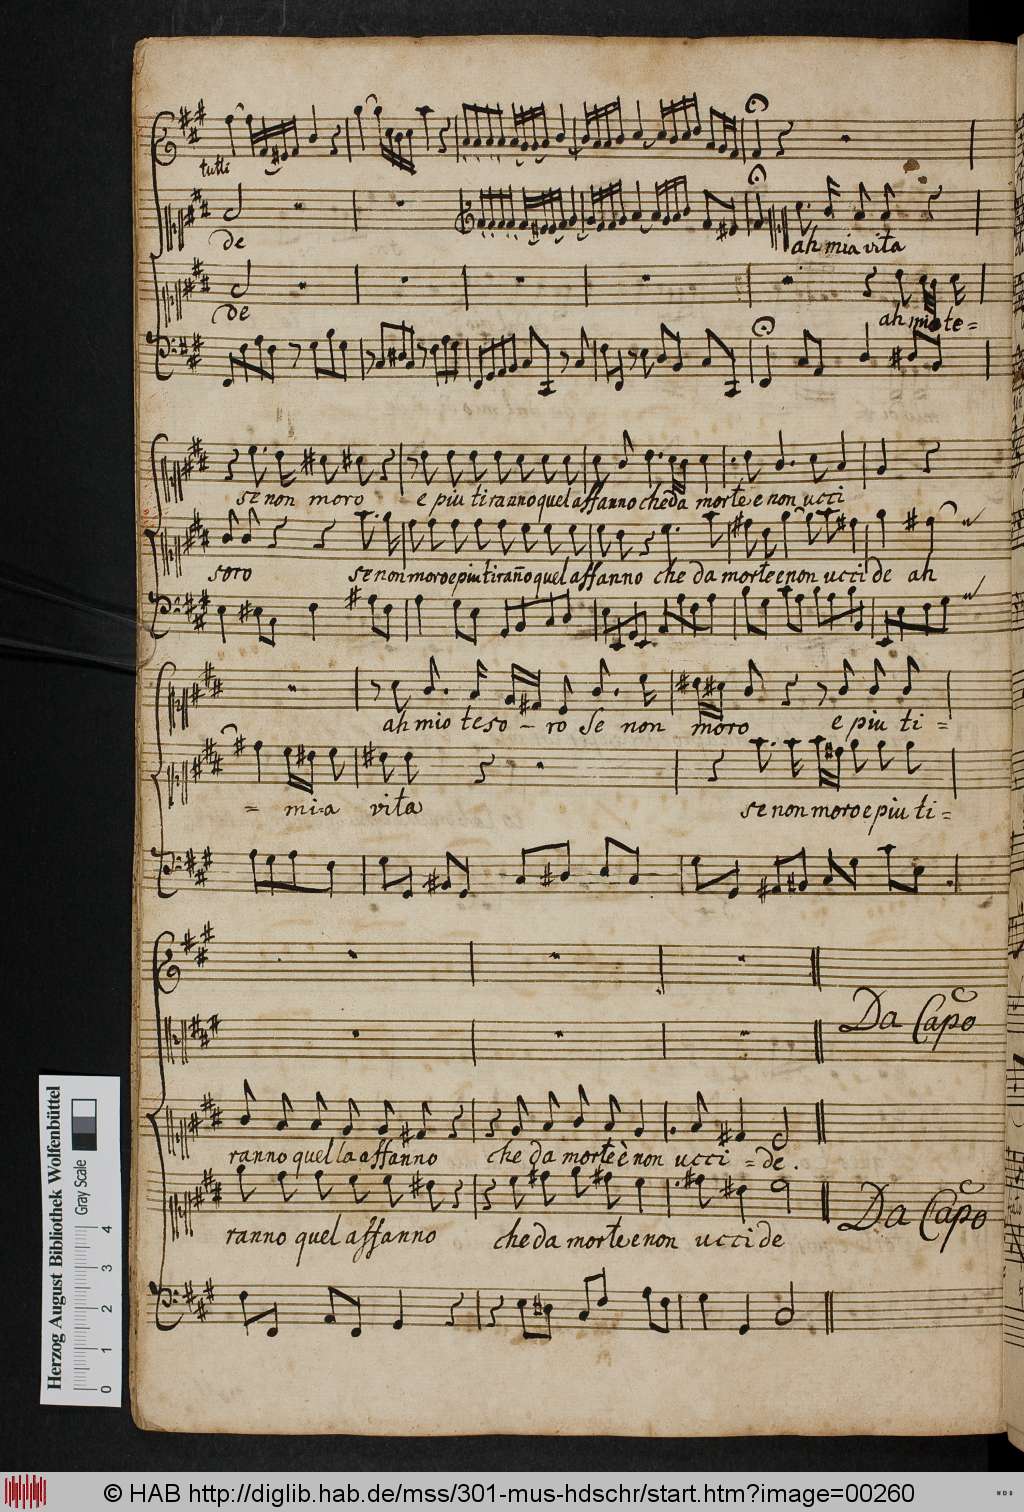 tutti
de
ah mia vita
de
ah mio te=
se non moro e piu tiranno quel affanno che da morte e non ucci
soro se non moro e piu tirano quel affanno che da morte e non uccide ah
ah mio teso - ro se non moro e piu ti=
= mi=a vita se non moro e piu ti=
Da Capo
ranno quella affanno che da morte è non ucci = de.
ranno quel affanno che da morte e non uccide
Da Capo
Herzog August Bibliothek Wolfenbüttel
Gray Scale
0 1 2 3 4
© HAB http://diglib.hab.de/mss/301-mus-hdschr/start.htm?image=00260